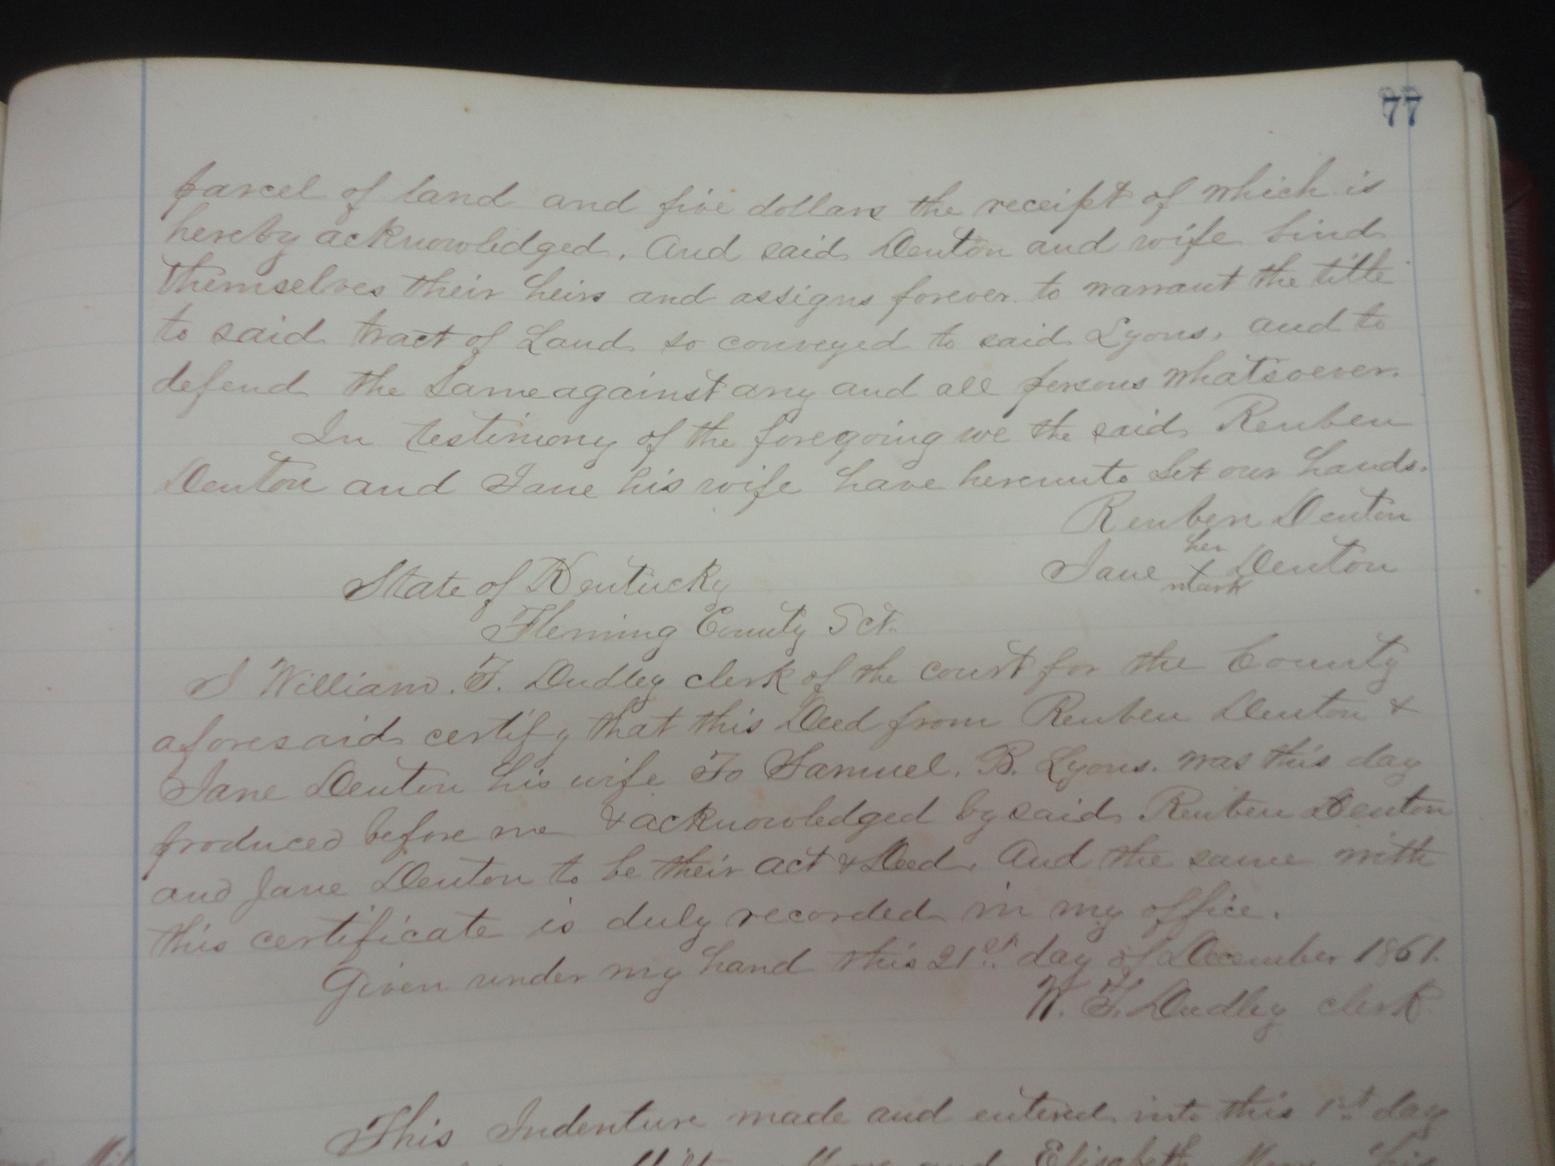 77
parcel of land and five dollars the receipt of which is
hereby acknowledged. And said Denton and wife bind
themselves their heirs and assigns forever to warrant the title
to said tract of Land so conveyed to said Lyons, and to
defend the same against any and all persons whatsoever.
In testimony of the foregoing we the said Reuben
Denton and Jane his wife have hereunto Set our hands.
Reuben Denton
her
Jane x Denton
mark
State of Kentucky
Fleming County Sct.
I William. T. Dudley clerk of the court for the County
aforesaid certify that this Deed from Reuben Denton &
Jane Denton his wife To Samuel. B. Lyons. was this day
produced before me & acknowledged by said Reuben Denton
and Jane Denton to be their act & Deed. And the same with
this certificate is duly recorded in my office.
Given under my hand this 21st day of December 1861.
W. T. Dudley clerk
This Indenture made and entered into this 1st day
and Elisabeth his